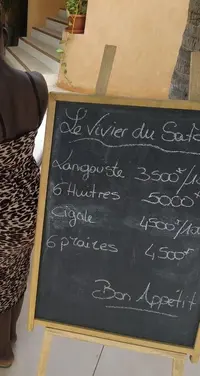 Le Vivier du
Langouste 3500f/10
6 Huîtres 5000f
Cigale 4500f/100
6 praires 4500f
Bon Appétit